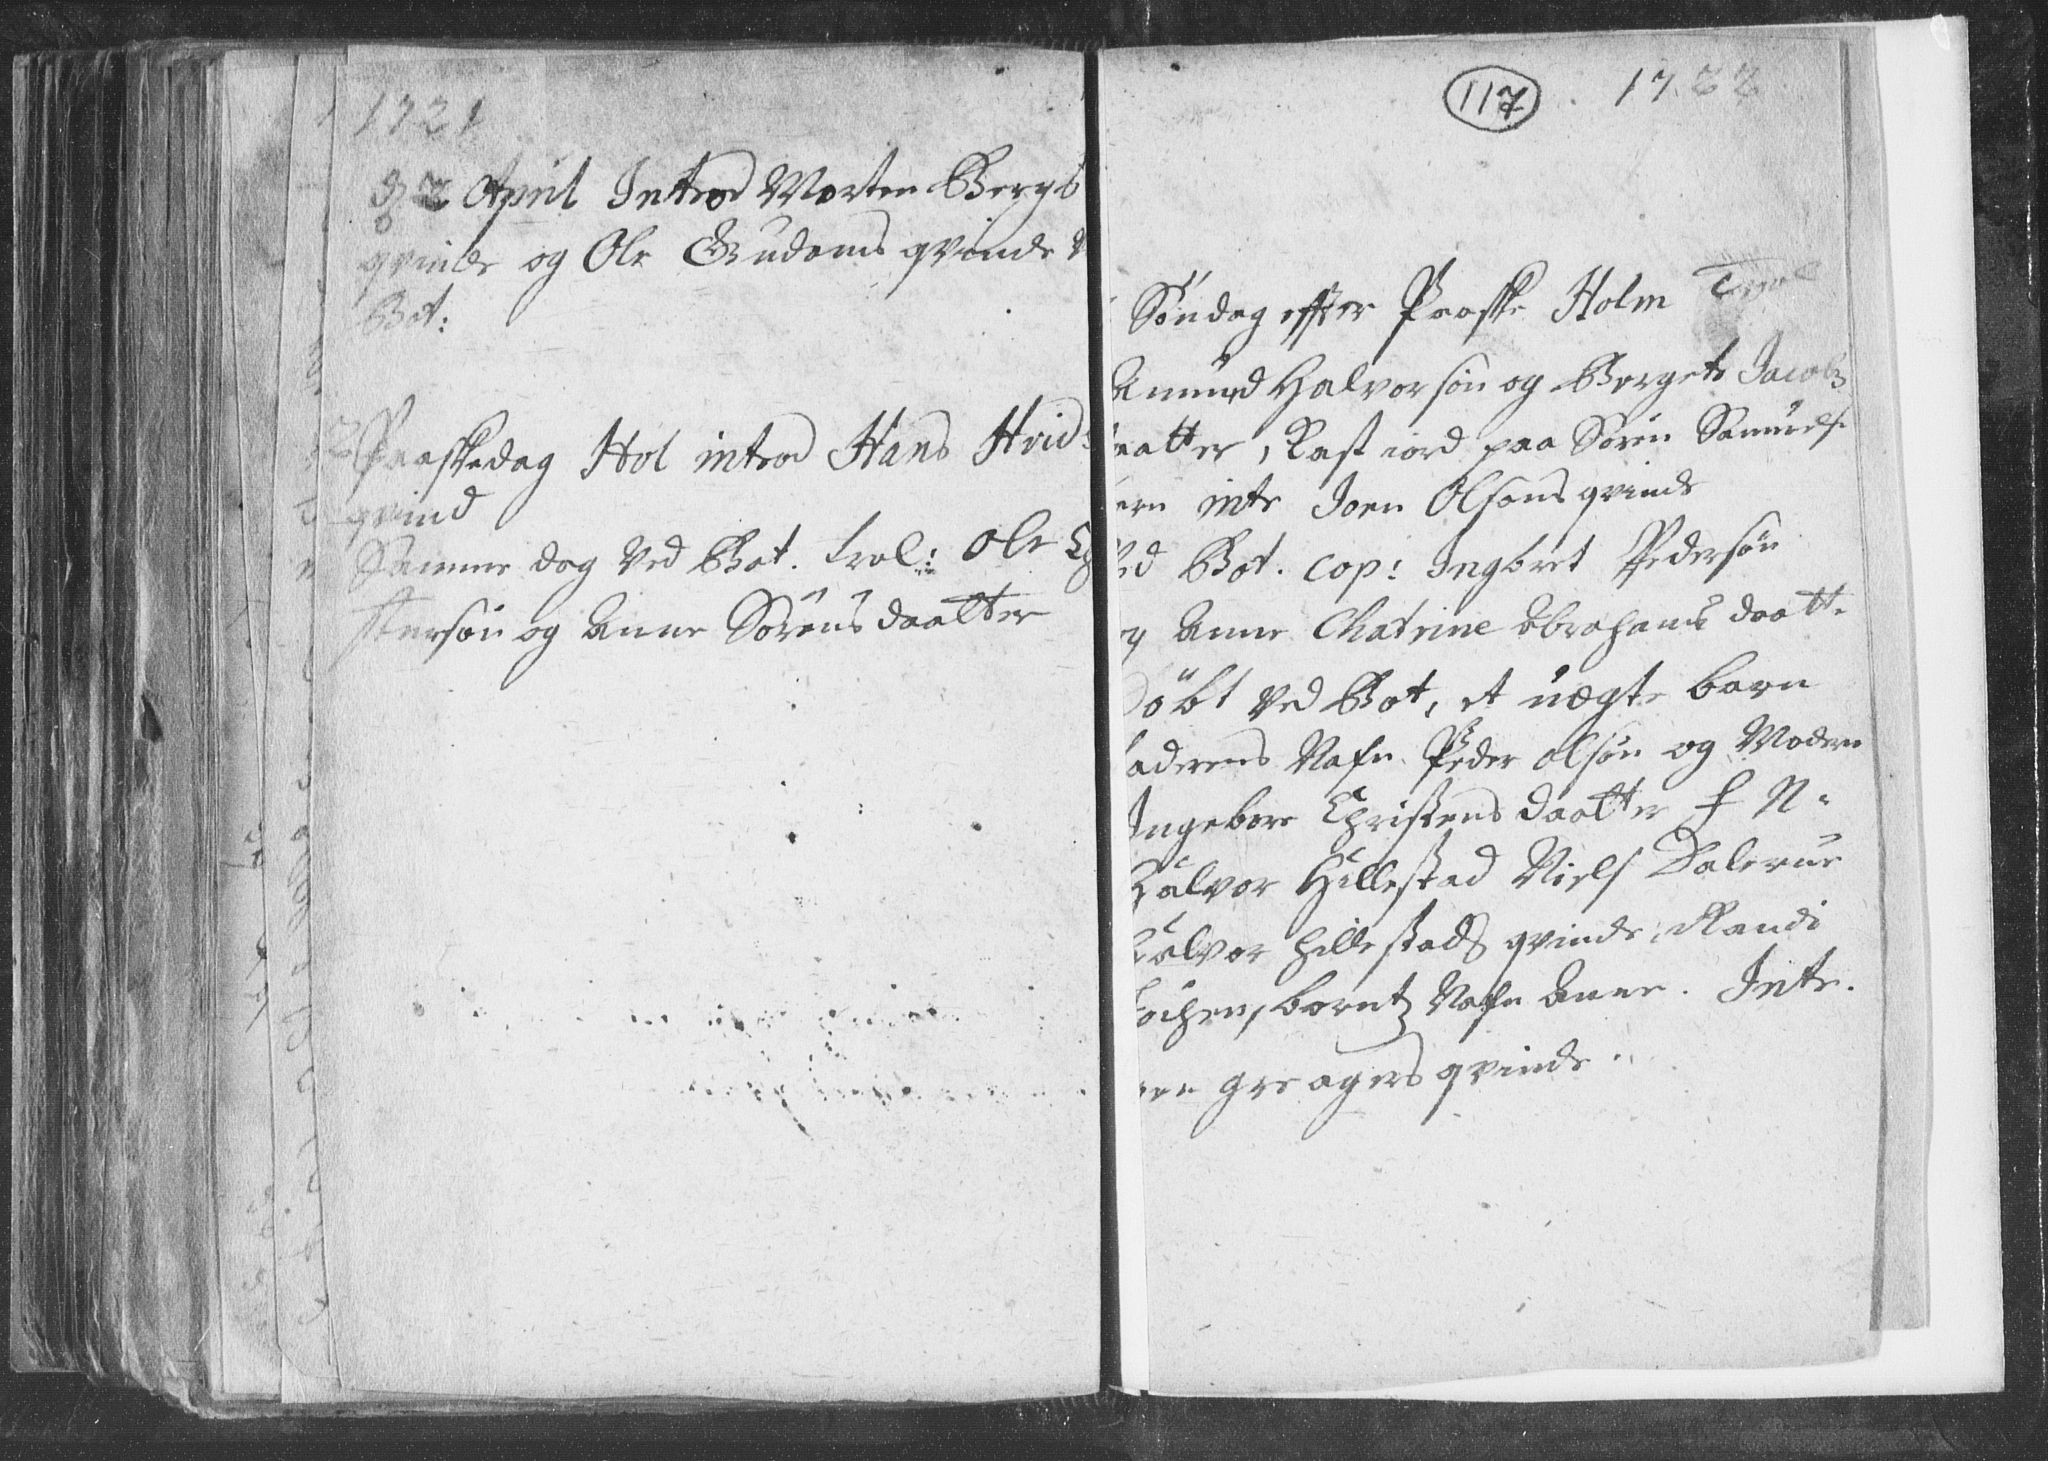 1721
d 2 April Introd Morten Bergs
qvinde og Ole Gudems qvinde
Bot:
Paaskedag Hol introd Hans Hvids
qvind
Samme dag ved Bot. trol: Ole
stensøn og Anne Sørensdaatter
117 1722
Søndag effter Paaske Holm Trol
Amund Halvorsøn og Bergete Jacobs
aatter, Kast iord paa Søren Samuels
ern intr Joen Olsøns qvinde
ed Bot. cop: Ingbret Pedersøn
g Anne Chatrine Abrahams daatt.
Døbt ved Bot, et uægte barn
aderens Nafn Peder Olsøn og Modern
Ingebor Christens daatter f N.
Halvor Hillestad Niels Dalerue
Halvor Hillestads qvinde, Randi
ochen, barnets Nafn Anne. Intr.
greagers qvinde